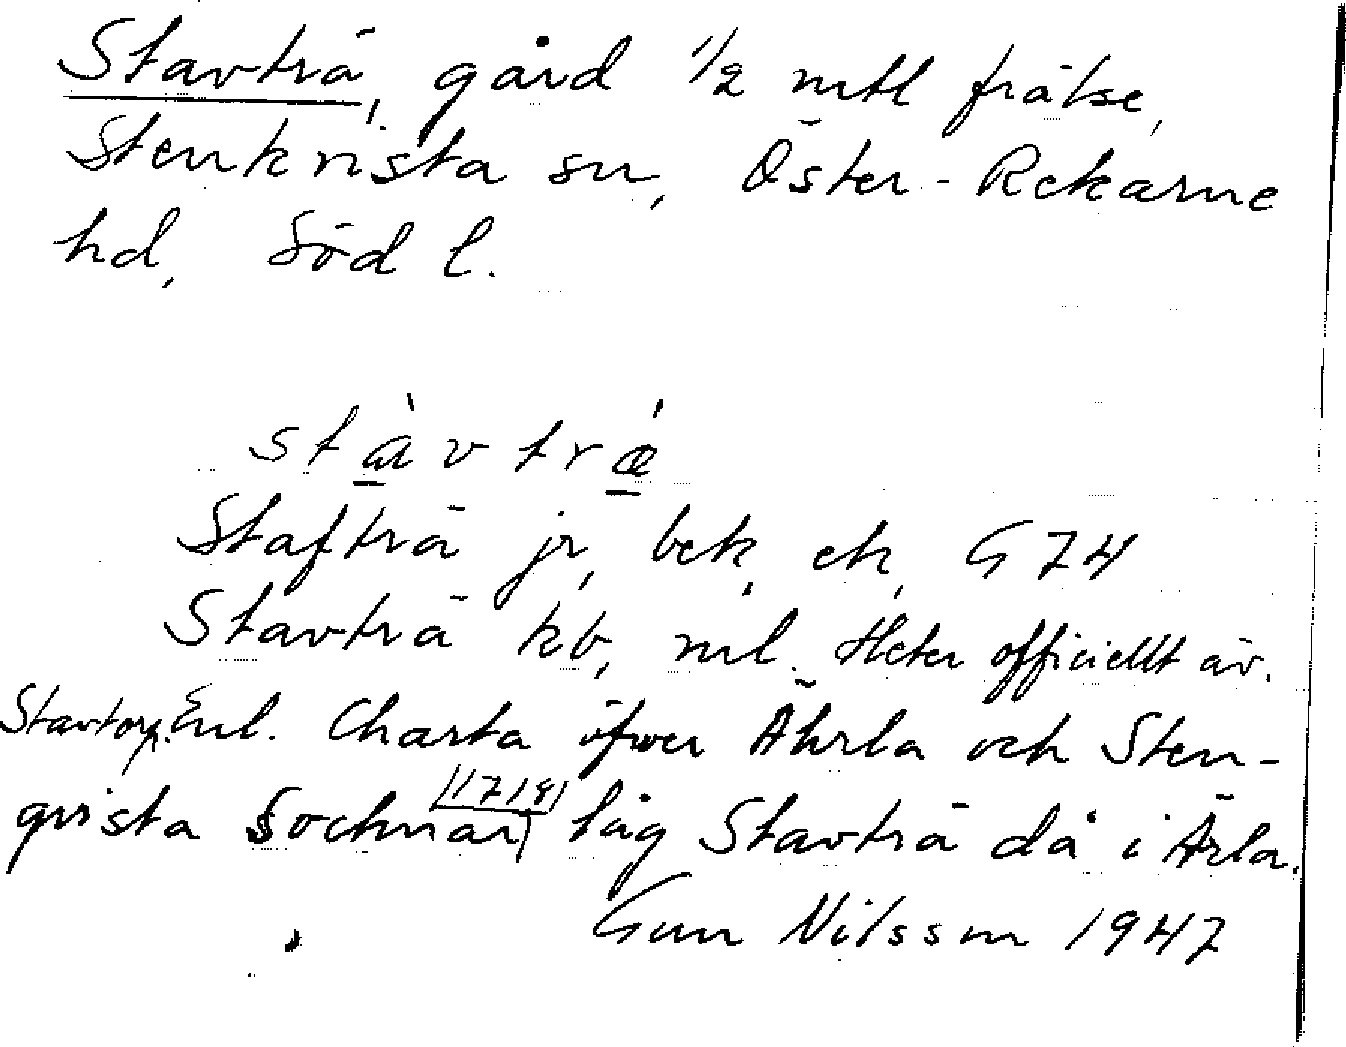 Stavträ, gård 1/2 mtl frälse,
Stenkvista sn, Öster-Rekarne
hd, Söd l.
stàvtrǽ
Stafträ jr, bek, ek, G 74
Stavträ kb, ml. Heter officiellt äv.
Stavtorp. Enl. Charta öfwer Ährla och Sten-
qvista Sochnar (1718) låg Stavträ då i Ärla.
Gun Nilsson 1947